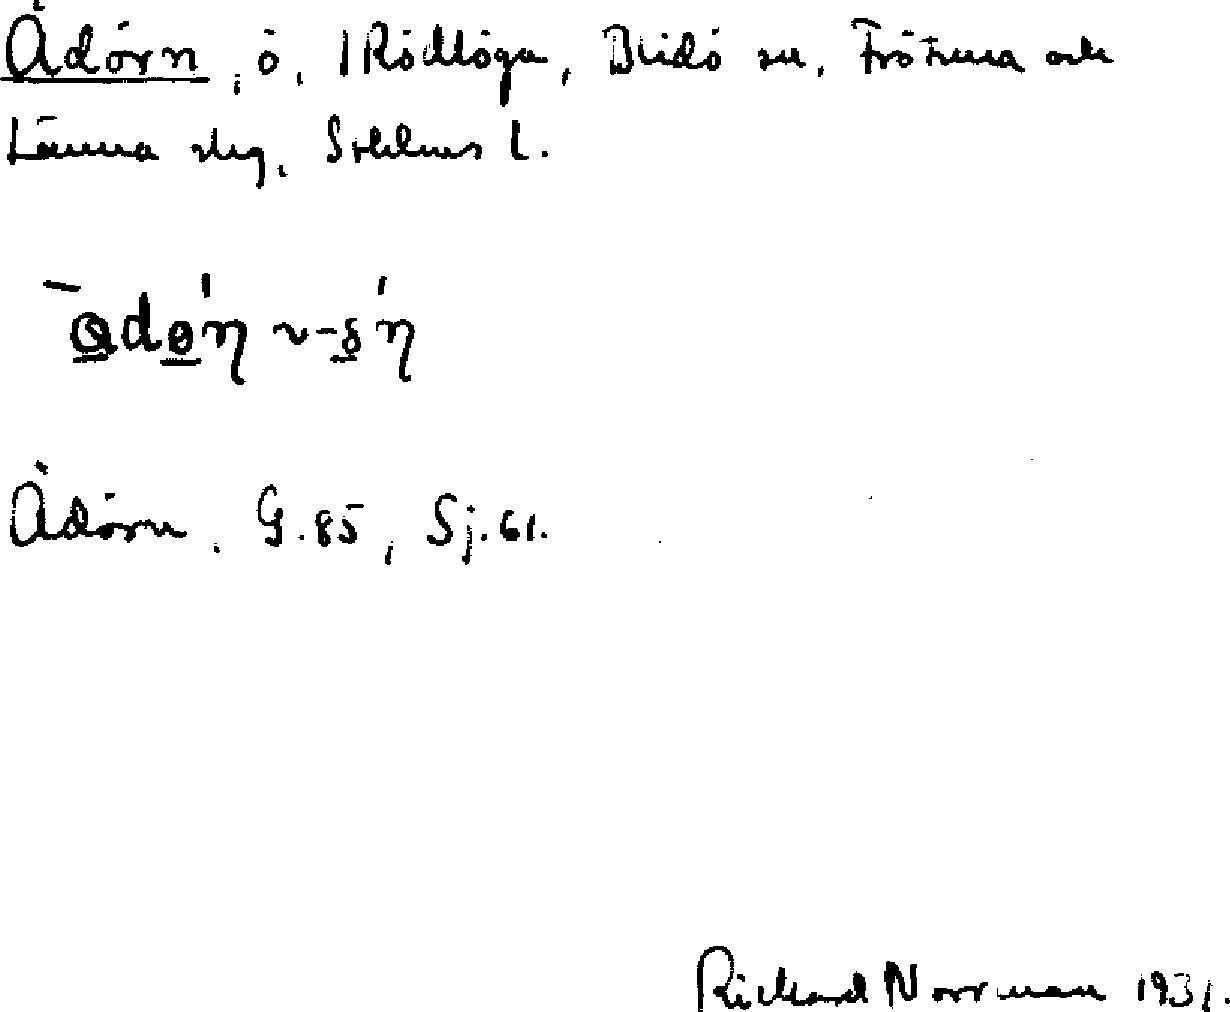 Ådörn, ö, 1 Rödlöga, Blidö sn, Frötuna och
Länna slg, Sthlms l.
Ådörn, G.85, Sj.61.
Rickard Norrman 1931.